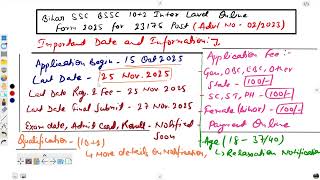 Bihar SSC BSSC 10+2 Inter Level Online
Form 2025 for 23175 Post (Advt No - 02/2023)
Important Date and Information:-
Application Begin - 15 Oct 2025
Last Date - 25 Nov. 2025
Last Date Reg. & Fee - 25 Nov 2025
Last Date Final Submit - 27 Nov 2025
Exam date, Admit Card, Result - Notified
Soon
Qualification - (10+2)
↳ More details on Notification,
Application Fee:-
Gen, OBC, EBC, Other
State - 100/-
SC, ST, PH - 100/-
Female (Bihar) - 100/-
Payment Online
Age (18 - 37/40)
↳ Relaxation Notification